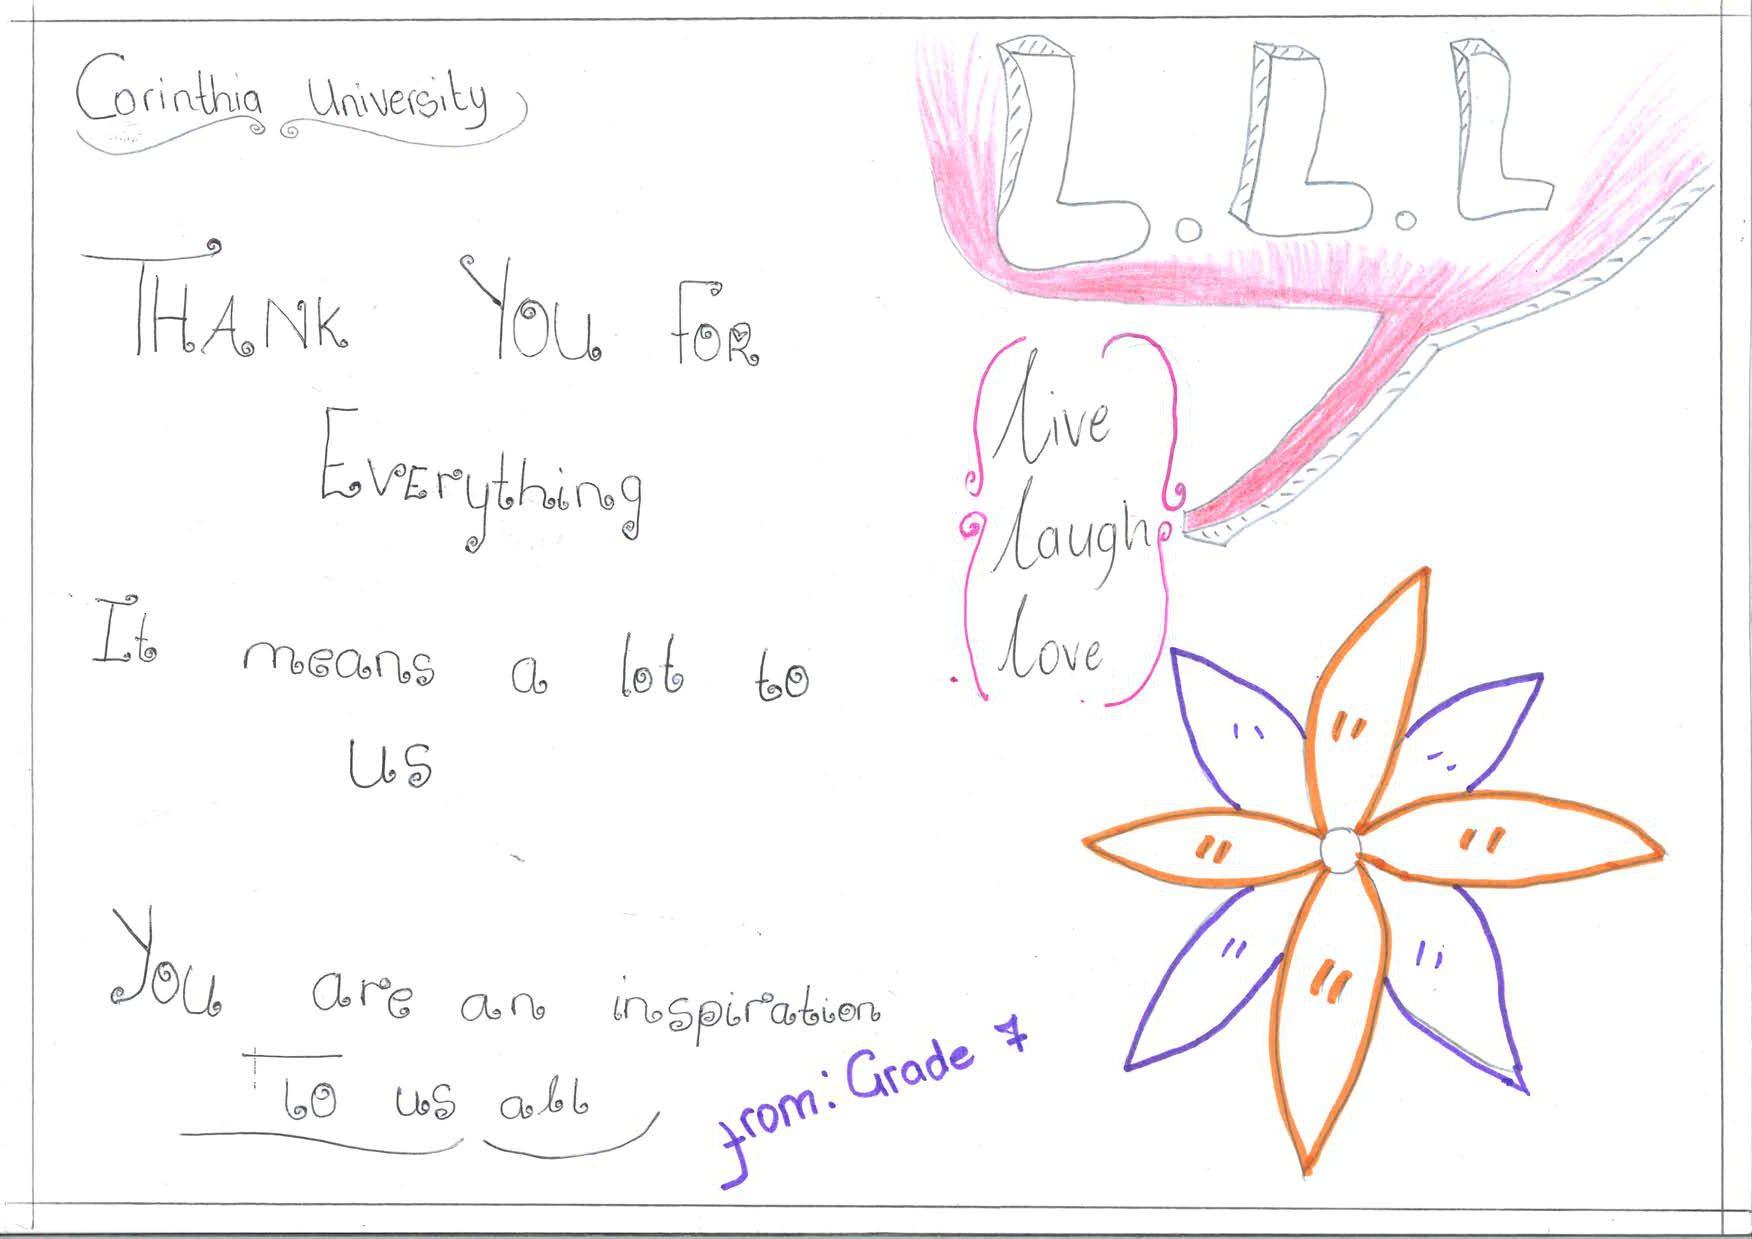 Corinthia University
THANK YOU FOR
EVERything
It means a lot to
us
You are an inspiration
To us all
from: Grade 7
L.L.L
live
laugh
love